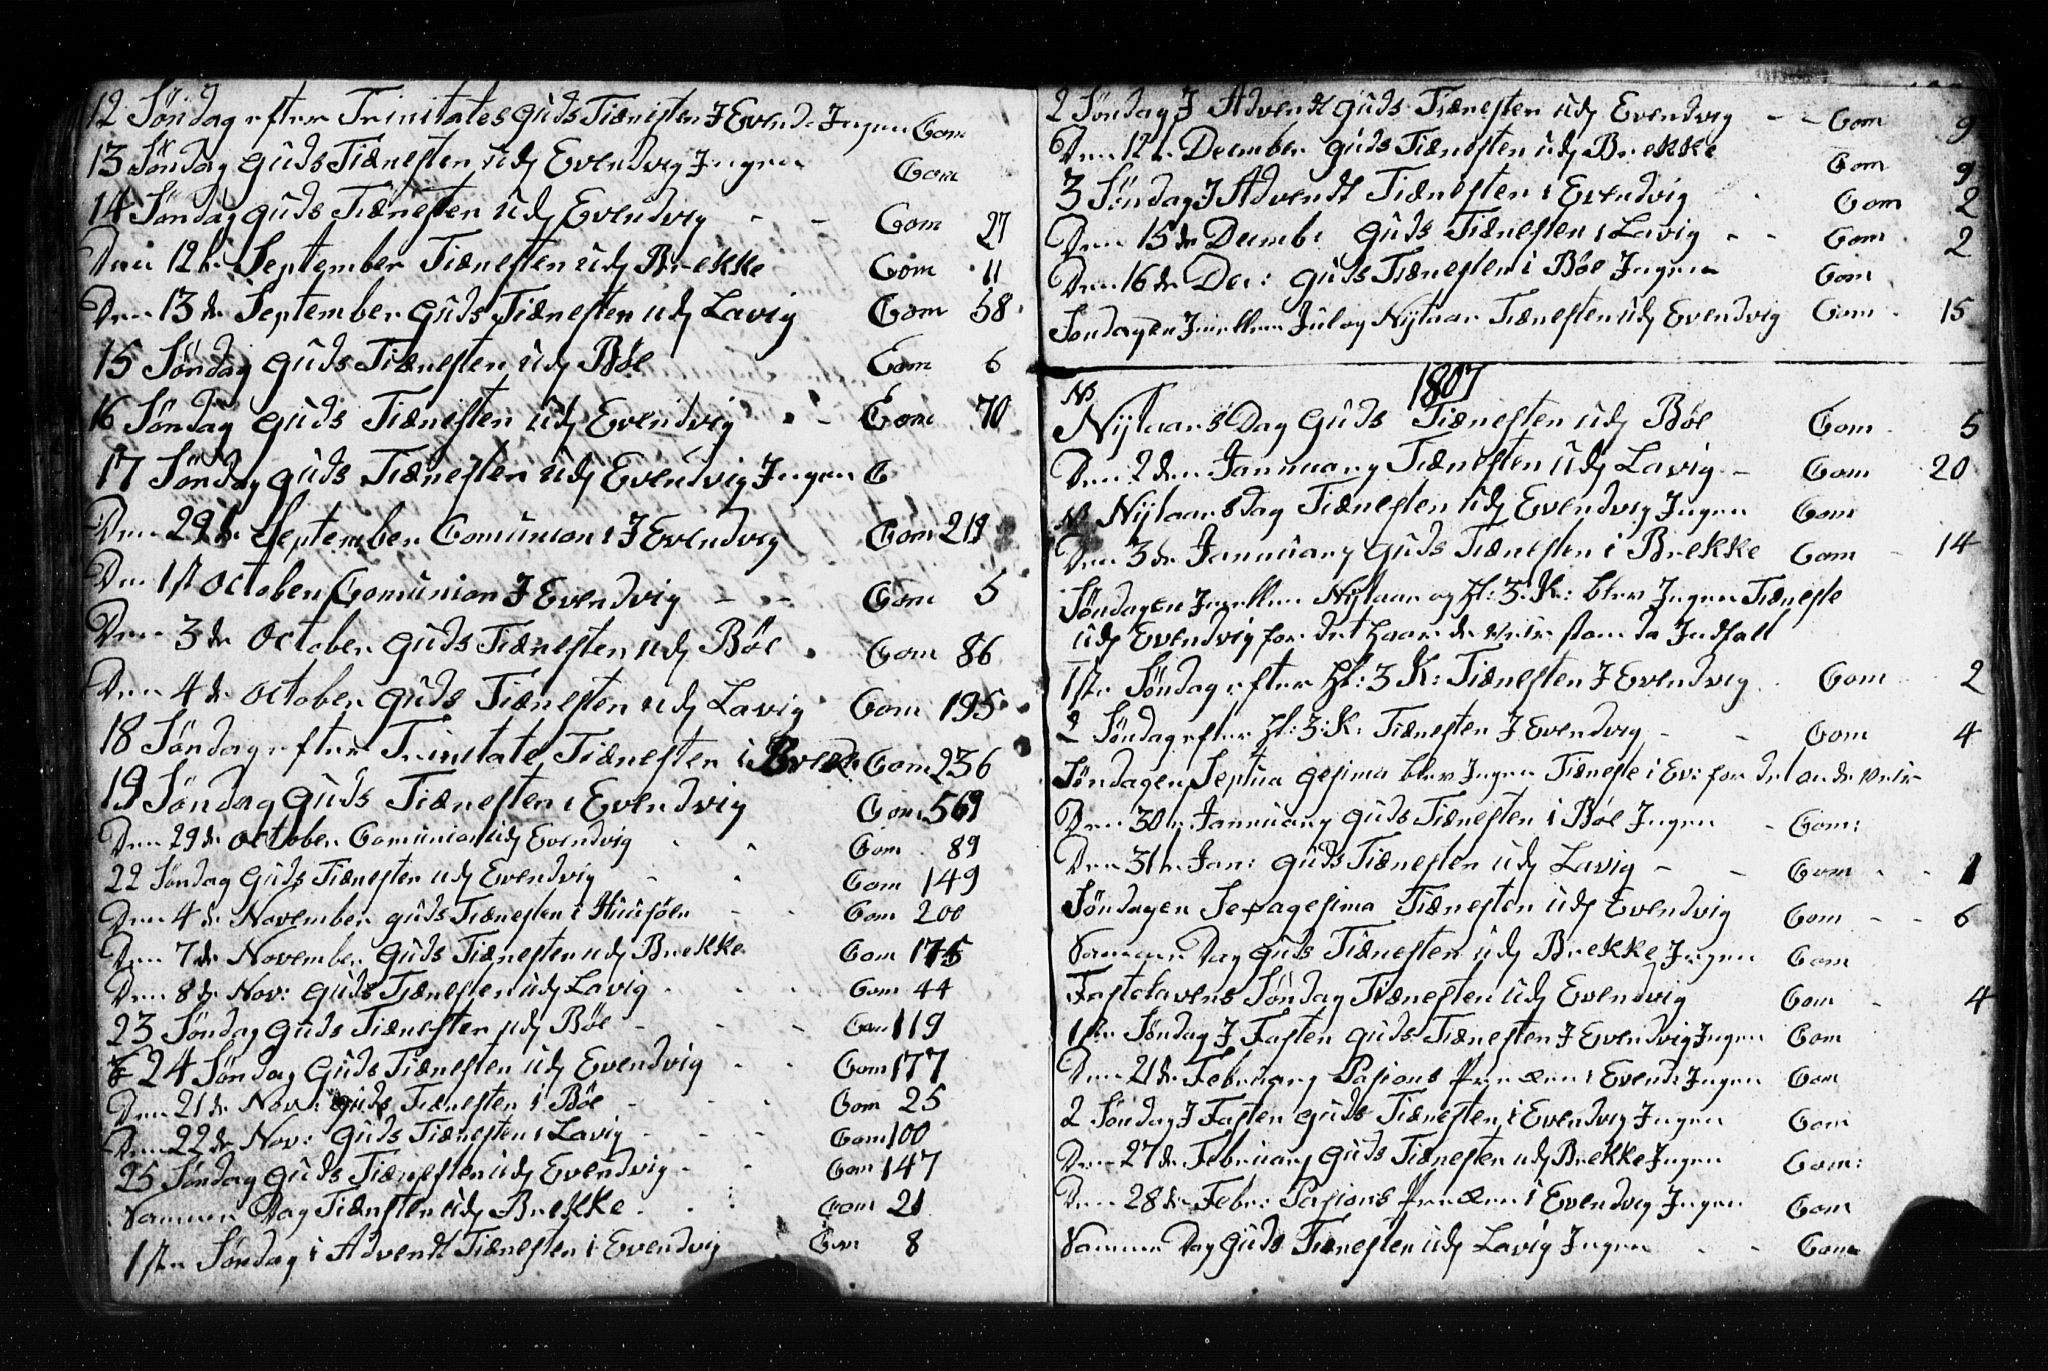 12 Søndag efter Trinitates Guds Tiænesten J Evend: Jngen Com
13 Søndag Guds Tiænesten udj Evendvig Jngen Com
14 Søndag Guds Tiænesten udj Evendvig - - Com 27
Den 12te September Tiænesten udj Brekke Com 11
Den 13de September Guds Tiænesten udj Lavig Com 58
15 Søndag Guds Tiænesten udj Bøe Com 6
16 Søndag Guds Tiænesten udj Evendvig - - Com 70
17 Søndag Guds Tiænesten udj Evendvig Jngen C
Den 29de September Comunion i J Evendvig Com 219
Den 1st October Comunion J Evendvig - - Com 5
Den 3de October Guds Tiænesten udj Bøe . Com 86
Den 4de October Guds Tiænesten udj Lavig Com 195
18 Søndag efter Trinitate Tiænesten i Brekke Com 236
19 Søndag Guds Tiænesten i Evendvig Com 569
Den 29de October Comunion udj Evendvig . . Com 89
22 Søndag Guds Tiænesten udj Evendvig - . Com 149
Den 4de November Guds Tiænesten i Huusøen - - Com 200
Den 7de November Guds Tiænesten udj Brekke Com 175
Den 8de Nov: Guds Tiænesten udj Lavig . . . Com 44
23 Søndag Guds Tiænesten udj Bøe - - - Com 119
24 Søndag Guds Tiænesten udj Evendvig - - Com 177
Den 21de Nov: Guds Tiænesten i Bøe - - . Com 25
Den 22de Nov: Guds Tiænesten i Lavig - - - Com 100
25 Søndag Guds Tiænesten udj Evendvig - . Com 147
Sammen Dag Tiænesten udj Brekke . . . Com 21
1ste Søndag i Advent Tiænesten i Evendvig Com 8
2 Søndag J Advent Guds Tiænesten udj Evendvig - - Com 9
Den 12te December Guds Tiænesten udj Brekke Com 9
3 Søndag J Advent Tiænesten i Evendvig Com 2
Den 15de Decemb: Guds Tiænesten i Lavig - - Com 2
Den 16de Dec: Guds Tiænesten i Bøe Jngen Com
Søndagen Jmellem Jul og Nytaar Tiænesten udj Evendvig Com 15
1807
NB
Nytaars Dag Guds Tiænesten udj Bøe Com 5
Den 2den Januuary Tiænesten udj Lavig - Com 20
NB Nytaarsdag Tiænesten udj Evendvig Jngen Com
Den 3de Januuary Guds Tiænesten i Brekke Com - 14
Søndagen Jmellem Nytaar og Hl: 3: K: blev Jngen Tiæneste
udj Evendvig for det haarde Veir som da Jndfalt
1ste Søndag efter Hl: 3 K: Tiænesten J Evendvig . Com 2
2 Søndag efter Hl: 3: K: Tiænesten J Evendvig - - Com 4
Søndagen Septuagesima blev Jngen Tiæneste i Ev: for det onde Veir
Den 30te Januuary Guds Tiænesten i Bøe Jngen - Com:
Den 31te Jan: Guds Tiænesten udj Lavig - - Com - - 1
Søndagen Sexagesima Tiænesten udj Evendvig Com - - 6
Sammen Dag Guds Tiænesten udj Brekke Jngen Com
Fastelavens Søndag Tiænesten udj Evendvig Com - 4
1ste Søndag J Fasten Guds Tiænesten J Evendvig Jngen Com
Den 21de Februuary Pasions Præken i Evend: Jngen Com
2 Søndag J Fasten Guds Tiænesten i Evendvig Jngen Com
Den 27de Februuary Guds Tiænesten udj Brekke Jngen Com:
Den 28de Febr: Pasions Præken i Evendvig Jngen Com
Sammen Dag Guds Tiænesten udj Lavig Jngen - - Com